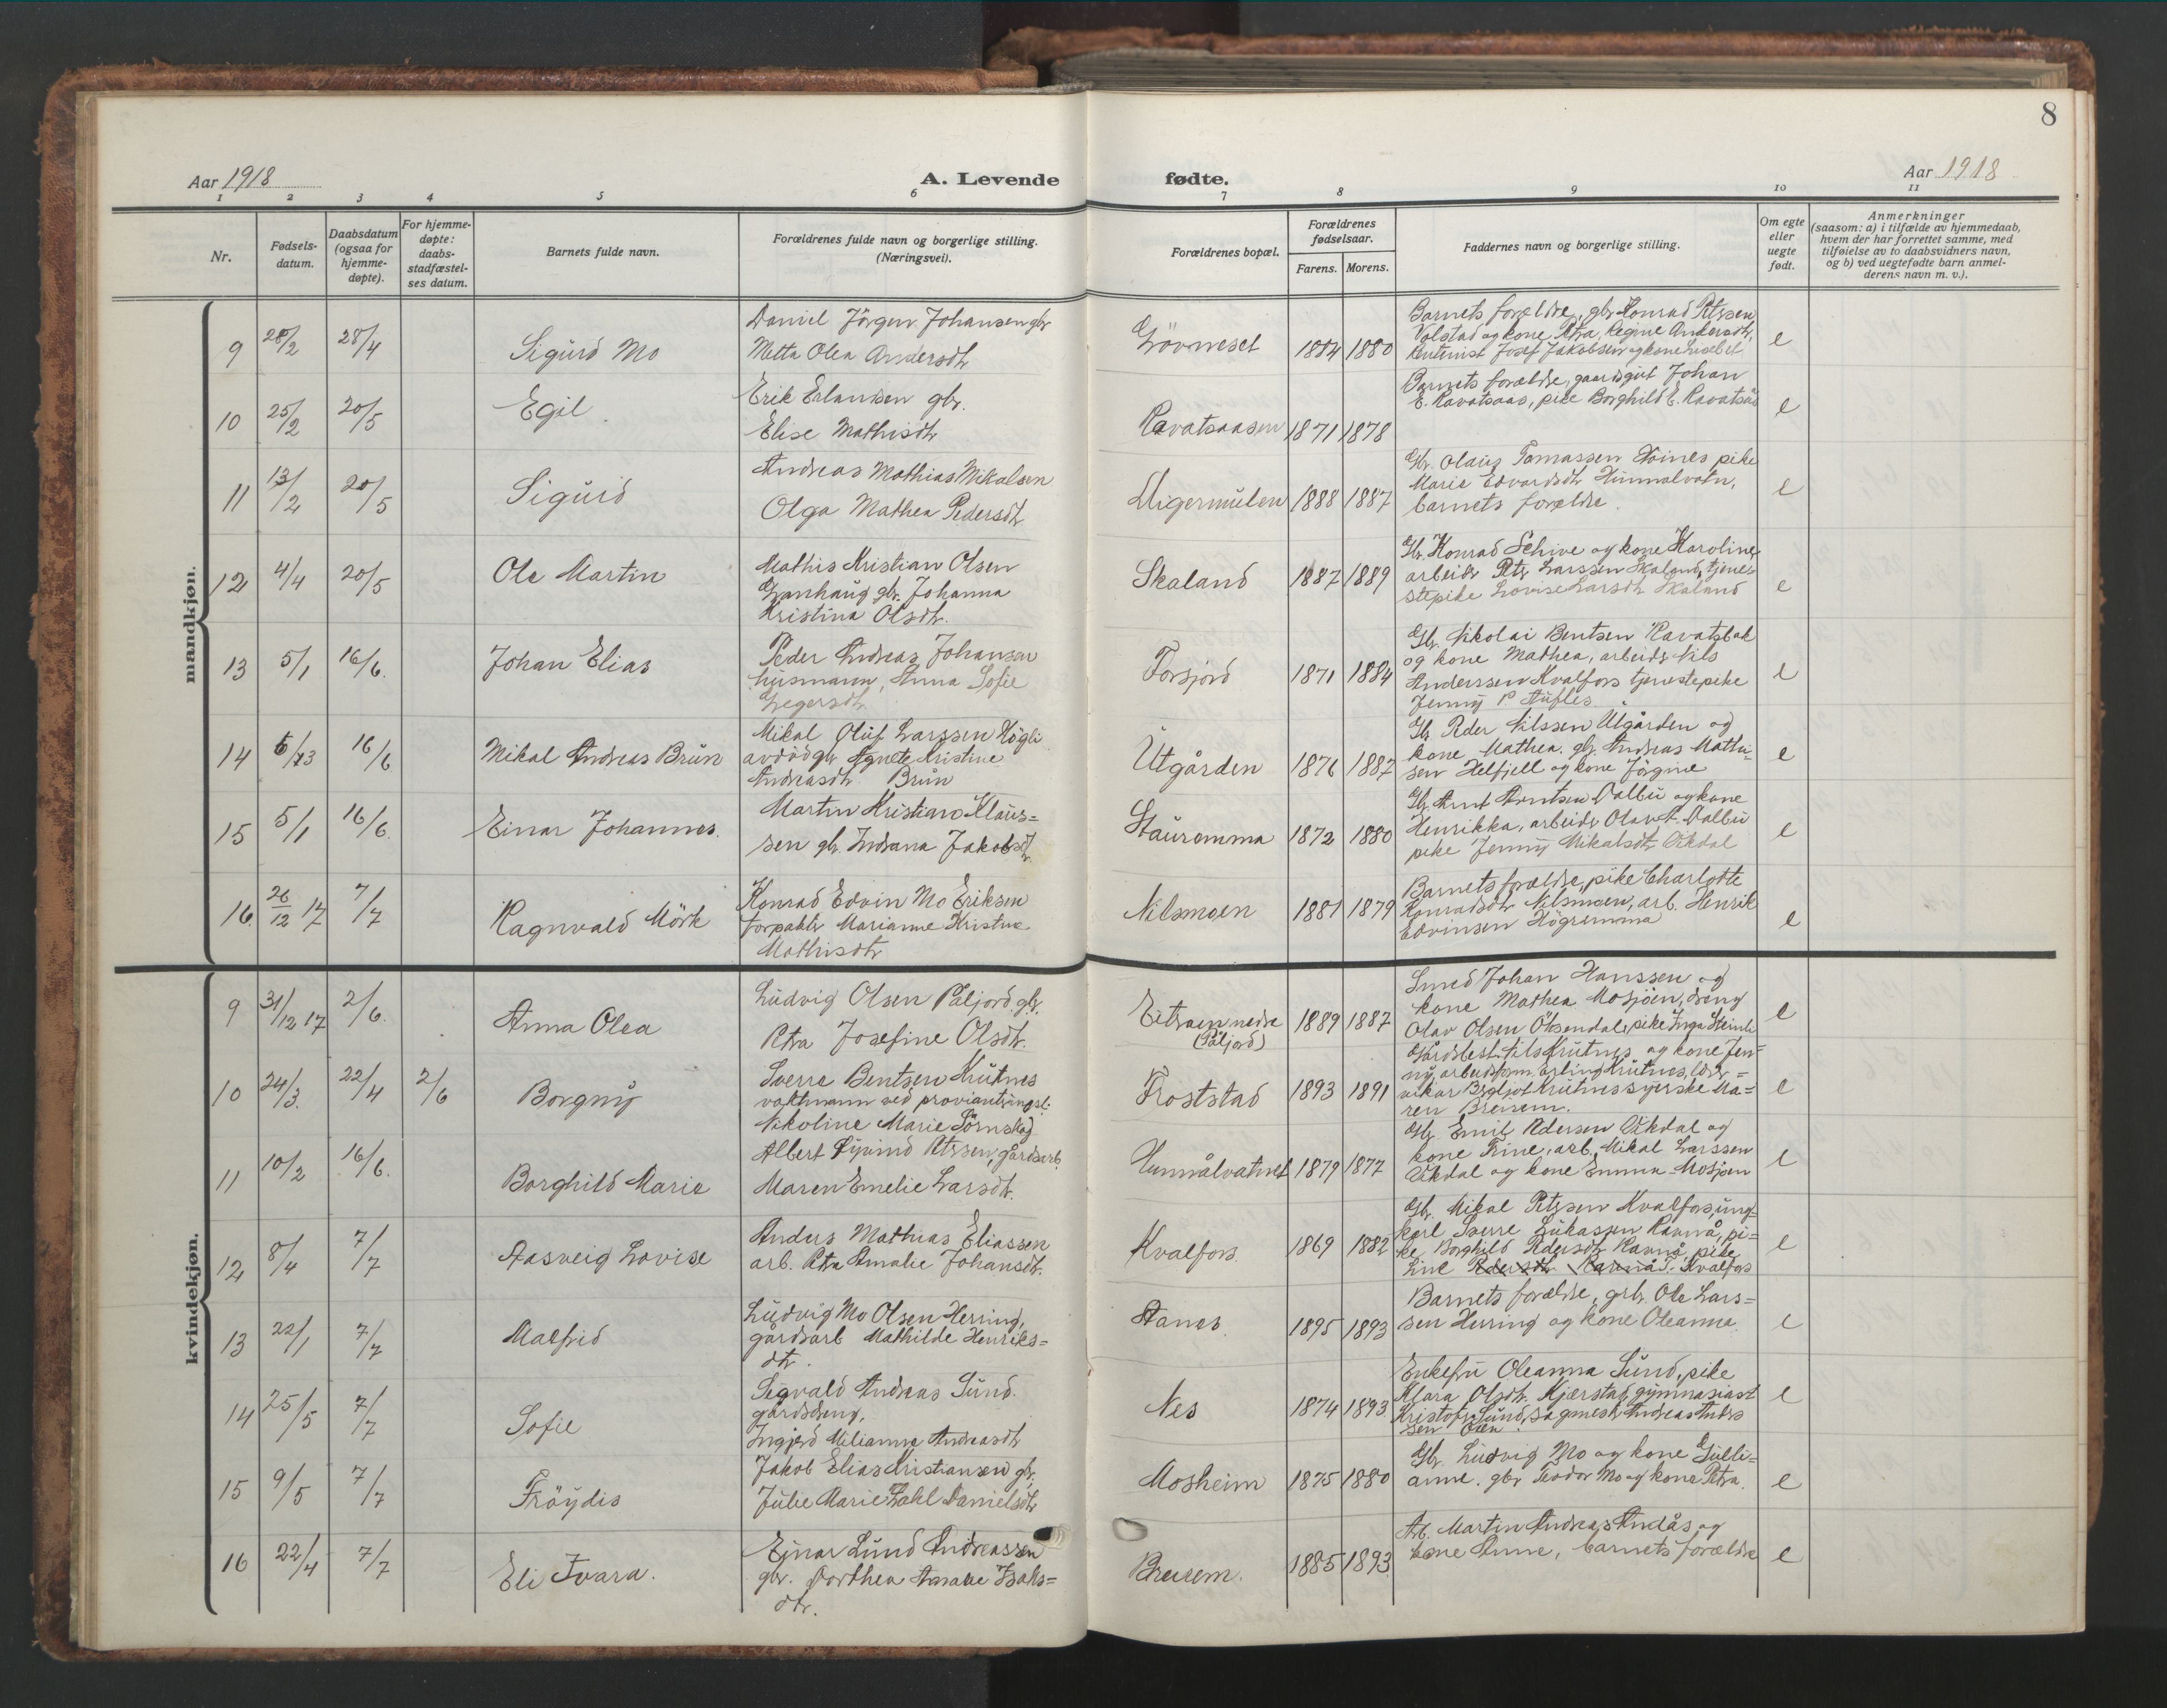 8
Aar 1918
A. Levende
fødte.
Aar 1918
1 2 3 4 5 6 7 8 9 10 11
Nr.
Fødsels-
datum.
Daabsdatum
(ogsaa for
hjemme-
døpte).
For hjemme-
døpte:
daabs-
stadfæstel-
ses datum.
Barnets fulde navn.
Forældrenes fulde navn og borgerlige stilling.
(Næringsvei).
Forældrenes bopæl.
Forældrenes
fødselsaar.
Farens. Morens.
Faddernes navn og borgerlige stilling.
Om egte
eller
uegte
født.
Anmerkninger
(saasom: a) i tilfælde av hjemmedaab,
hvem der har forrettet samme, med
tilføielse av to daabsvidners navn,
og b) ved uegtefødte barn anmel-
derens navn m. v.).
mandkjøn.
9 28/2 28/4 Sigurd Mo
Daniel Jörgen Johansen gbr
Metta Olea Andersdtr
1884 1880
Barnets forældre, gbr Konrad Petersen
Volstad og kone Petra, Regine Andersdtr,
Josef Jakobsen og kone
e
10 25/2 20/5 Egil
Erik Erlandsen gbr.
Elise Mathisdtr
Ravatsaasen 1871 1878
Barnets forældre, gaardsgut Johan
E. Ravatsaas, pike Borghild E. Ravatsås
e
11 13/2 20/5 Sigurd
Andreas Mathias Mikalsen
Olga Mathea Pedersdtr
Digermulen 1888 1887
Gbr. Olaus Tomassen Höines pike
Marie Edvardsdtr Hunnalvatn,
barnets forældre.
e
12 4/4 20/5 Ole Martin
Mathis Kristian Olsen
Granhaug gbr. Johanna
Kristina Olsdtr.
Skaland 1887 1889
Gbr. Konrad Schive og kone Karoline
arbeider Petr Larssen Skaland, tjene-
stepike Lovise Larsdtr Skaland
e
13 5/1 16/6. Johan Elias
Peder Andreas Johansen
husmann, Anna Sofie
Forsjord 1871 1884
Gbr. Nikolai Bentsen Ravatsbak
og kone Mathea, arbeider Nils
Anderssen Kvalfors tjenestepike
Jenny P.
e
14 16/6 Mikal Andreas Brun
Mikal Oluf Larssen Högli
avdöd gbr Agnete Kristine
Andreasdtr. Brun
Utgården 1876 1887
Gbr Peder Nilssen Utgården og
kone Mathea. gbr. Andreas Mathi-
sen Helfjell og kone Jörgine
e
15 5/1 16/6. Einar Johannes.
Martin Kristian Klaus=
sen gbr. Indiana Jakobsdtr
Stauremma 1872 1880
Gbr Arnt Arntsen Dalbu og kone
Henrikka, arbeider Olav A. Dalbu
pike Jenny Mikalsdtr Vikdal
e
16. 26/12 17 7/7 Ragnvald Mörk
Konrad Edvin Mo Eriksen
forpakter Marianne Kristine
Mathisdtr
Nilsmoen 1881 1879
Barnets forældre, pike Charlotte
Konradsdtr Nilsmoen, arb. Henrik
Edvinsen Högremma
e
kvindekjøn.
9 31/12 17 2/6. Anna Olea
Ludvig Olsen Påljord gbr.
Petra Josefine Olsdtr.
Eitraen nedre
(Påljord)
1889 1887
Smed Johan Hanssen og
kone Mathea Mosjöen, dreng
Olav Olsen Öksendal, pike Inga Steinli
e
10 24/3. 22/4 2/6 Borgny
Sverre Bentsen Krutnes
vaktmann ved provianteringsl.
Nikoline Marie
Froststad 1893 1891
Gårdsbest. Nils Krutnes og kone Jen=
ny, arbeidsform. Erling Krutnes, lærer=
vikar Bergljot Krutnes syerske Ma=
ren Breisem.
e
11 10/2 16/6. Borghild Marie
Albert Öyvind Petersen, gårdsarb.
Maren Emelie Larsdtr.
Hunnålvatnet 1879 1877
Gbr. Emil Pedersen Vikdal og
kone Trine, arb. Mikal Larssen
Vikdal og kone Emma Mosjöen
e
12 8/4 7/7 Aasveig Lovise
Anders Mathias Eliassen
arb. Petra Amalie Johansdtr.
Kvalfors 1869 1882
Gbr. Mikal Petersen Kvalfors, ung-
karl Sverre Lukassen Ravnå, pi=
ke Borghild Pedersdtr Ravnå, pike
Line Pedersdtr Ravnå. Kvalfors
e
13 22/1 7/7 Malfrid
Ludvig Mo Olsen Herring,
gårdsarb Mathilde Henriks=
dtr.
Stanes 1895 1893
Barnets forældre, grb. Ole Lars=
sen Herring og kone Oleanna
e
14 25/5 7/7 Sofie
Sigvald Andreas Sund.
gårdsdreng.
Ingjerd Milianne Andreasdtr
Nes 1874 1893
Enkefru Oleanna Sund, pike
Klara Olsdtr. Kjærstad, gymnasiast
Kristofer Sund, sagmester Andreas Anders
sen Ören.
e
15 9/5 7/7 Fröydis
Jakob Elias Kristiansen gbr.
Julie Marie Zahl Danielsdtr
Mosheim 1875 1880
Gbr. Ludvig Mo og kone Gulli-
anne. gbr Teodor Mo og kone Petra.
e
16 22/4 7/7 Eli Ivara.
Ejnar Lund Andreassen
gbr. Dorthea Amalie Isaks=
dtr.
Breisem. 1885 1893
Arb. Martin Andreas Andås og
kone Anne, barnets forældre
e